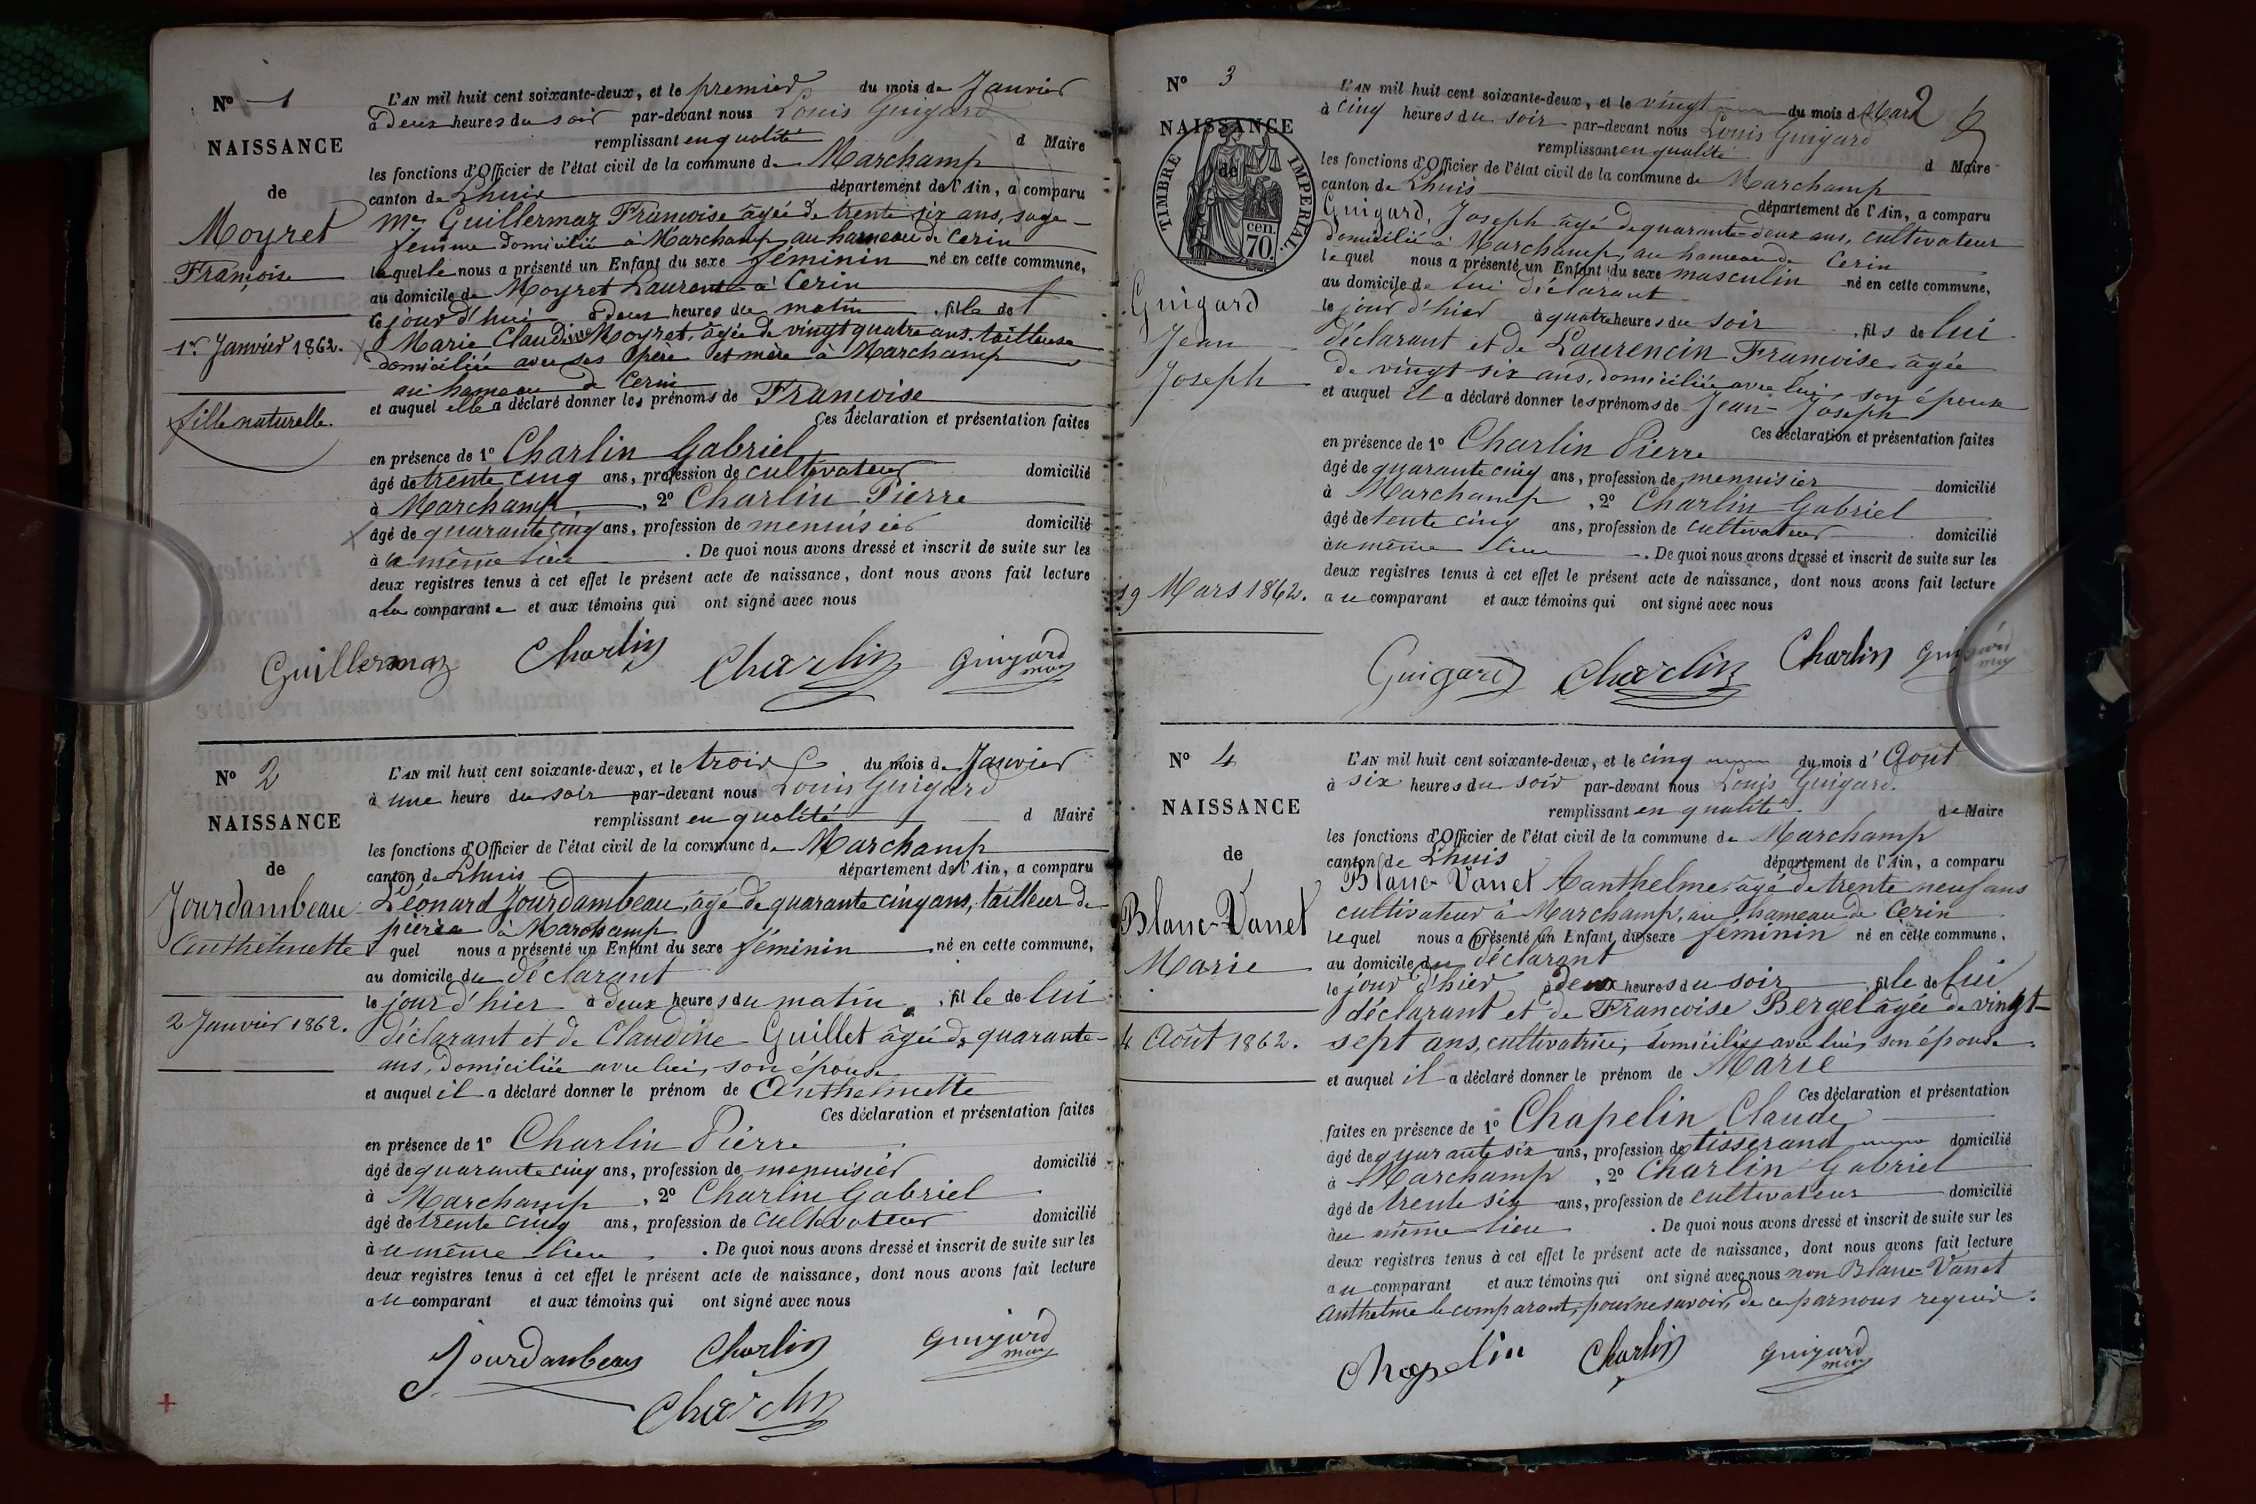 N° 1
NAISSANCE
de
Moyret
Françoise
1er Janvier 1862.
fille naturelle.
L'AN mil huit cent soixante-deux, et le premier du mois de Janvier
à deux heures du soir par-devant nous Louis Guigard
remplissant en qualité d Maire
les fonctions d'Officier de l'état civil de la commune de Marchamp
canton de Lhuis département de l'Ain, a comparu
Me Guillermaz Françoise âgée de trente six ans, sage-
femme domiciliée à Marchamp, au hameau de Cerin
laquelle nous a présenté un Enfant du sexe féminin né en cette commune,
au domicile de Moyret Laurent à Cerin
le jour d'hui à deux heures du matin, fille de
Marie Claudine Moyret, âgée de vingt quatre ans, tailleuse
domiciliée avec ses père et mère à Marchamp
au hameau de Cerin
et auquel elle a déclaré donner les prénoms de Françoise
Ces déclaration et présentation faites
en présence de 1° Charlin Gabriel
âgé de trente cinq ans, profession de cultivateur domicilié
à Marchamp, 2° Charlin Pierre
âgé de quarante cinq ans, profession de menuisier domicilié
à u même lieu. De quoi nous avons dressé et inscrit de suite sur les
deux registres tenus à cet effet le présent acte de naissance, dont nous avons fait lecture
a la comparante et aux témoins qui ont signé avec nous
Guillermaz Charlin Charlin Guigard
N° 2
NAISSANCE
de
Jourdambeau
Anthelmette
2 Janvier 1862.
L'AN mil huit cent soixante-deux, et le trois du mois de Janvier
à une heure du soir par-devant nous Louis Guigard
remplissant en qualité d Maire
les fonctions d'Officier de l'état civil de la commune de Marchamp
canton de Lhuis département de l'Ain, a comparu
Léonard Jourdambeau, âgé de quarante cinq ans, tailleur de
pierre à Marchamp
quel nous a présenté un Enfant du sexe féminin né en cette commune,
au domicile du déclarant
le jour d'hier à deux heures du matin, fille de lui
déclarant et de Claudine Guillet âgée de quarante-
ans, domiciliée avec lui, son épouse
et auquel il a déclaré donner le prénom de Anthelmette
Ces déclaration et présentation faites
en présence de 1° Charlin Pierre
âgé de quarante cinq ans, profession de menuisier domicilié
à Marchamp, 2° Charlin Gabriel
âgé de trente cinq ans, profession de cultivateur domicilié
à u même lieu. De quoi nous avons dressé et inscrit de suite sur les
deux registres tenus à cet effet le présent acte de naissance, dont nous avons fait lecture
au comparant et aux témoins qui ont signé avec nous
Jourdambeau Charlin Guigard
Charlin
2
N° 3
NAISSANCE
de
TIMBRE IMPERIAL
cen.
70.
Guigard
Jean
Joseph
19 Mars 1862.
L'AN mil huit cent soixante-deux, et le vingt du mois d Mars
à cinq heures du soir par-devant nous Louis Guigard
remplissant en qualité d Maire
les fonctions d'Officier de l'état civil de la commune de Marchamp
canton de Lhuis département de l'Ain, a comparu
Guigard, Joseph âgé de quarante-deux ans, cultivateur
domicilié à Marchamp, au hameau de Cerin
lequel nous a présenté un Enfant du sexe masculin né en cette commune,
au domicile de lui déclarant
le jour d'hier à quatre heures du soir, fils de lui
déclarant et de Laurencin Françoise âgée
de vingt six ans, domiciliée avec lui, son épouse
et auquel il a déclaré donner les prénoms de Jean-Joseph
Ces déclaration et présentation faites
en présence de 1° Charlin Pierre
âgé de quarante cinq ans, profession de menuisier domicilié
à Marchamp, 2° Charlin Gabriel
âgé de tente cinq ans, profession de cultivateur domicilié
àu même lieu. De quoi nous avons dressé et inscrit de suite sur les
deux registres tenus à cet effet le présent acte de naissance, dont nous avons fait lecture
au comparant et aux témoins qui ont signé avec nous
Guigard Charlin Charlin
N° 4
NAISSANCE
de
Blanc-Vanet
Marie
4 Août 1862.
L'AN mil huit cent soixante-deux, et le cinq du mois d'Août
à six heures du soir par-devant nous Louis Guigard.
remplissant en qualité de Maire
les fonctions d'Officier de l'état civil de la commune de Marchamp
canton de Lhuis département de l'Ain, a comparu
Blanc-Vanet Anthelme, âgé de trente neuf ans
cultivateur à Marchamp, au hameau de Cerin
lequel nous a présenté un Enfant du sexe féminin né en cette commune,
au domicile du déclarant
le jour d'hier à deux heures du soir, fille de lui
déclarant et de Françoise Berget âgée de vingt-
sept ans, cultivatrice, domiciliée avec lui, son épouse.
et auquel il a déclaré donner le prénom de Marie
Ces déclaration et présentation
faites en présence de 1° Chapelin Claude
âgé de quarante six ans, profession de tisserand domicilié
à Marchamp, 2° Charlin Gabriel
âgé de trente six ans, profession de cultivateur domicilié
àu même lieu. De quoi nous avons dressé et inscrit de suite sur les
deux registres tenus à cet effet le présent acte de naissance, dont nous avons fait lecture
au comparant et aux témoins qui ont signé avec nous non Blanc-Vanet
Anthelme le comparant, pour ne savoir, de ce par nous requis.
Chapelin Charlin Guigard